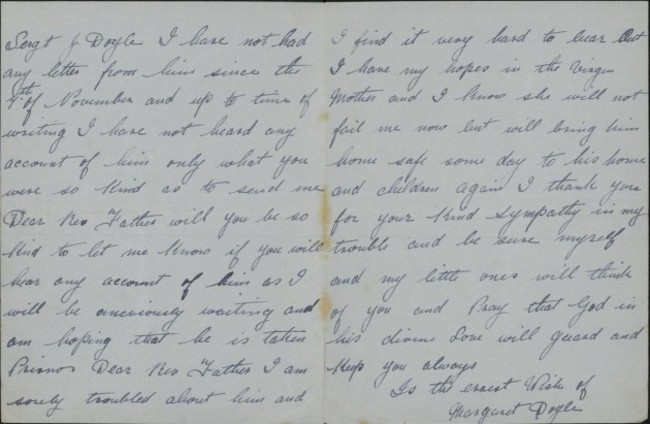 Sergt J Doyle I have not had
any letter from him since the
9th of November and up to time of
writing I have not heard any
account of him only what you
were so kind as to send me
Dear Rev Father will you be so
kind to let me know if you will
hear any account of him as I
will be anxiously waiting and
am hoping that he is taken
Prisnor Dear Rev Father I am
sorely troubled about him and
I find it very hard to bear but
I have my hopes in the Virgin
Mother and I know she will not
fail me now but will bring him
home safe some day to his home
and children again I thank you
for your kind sympathy in my
trouble and be sure myself
and my little ones will think
of you and Pray that God in
his divine Love will guard and
Keep you always
Is the ernest Wish of
Margaret Doyle